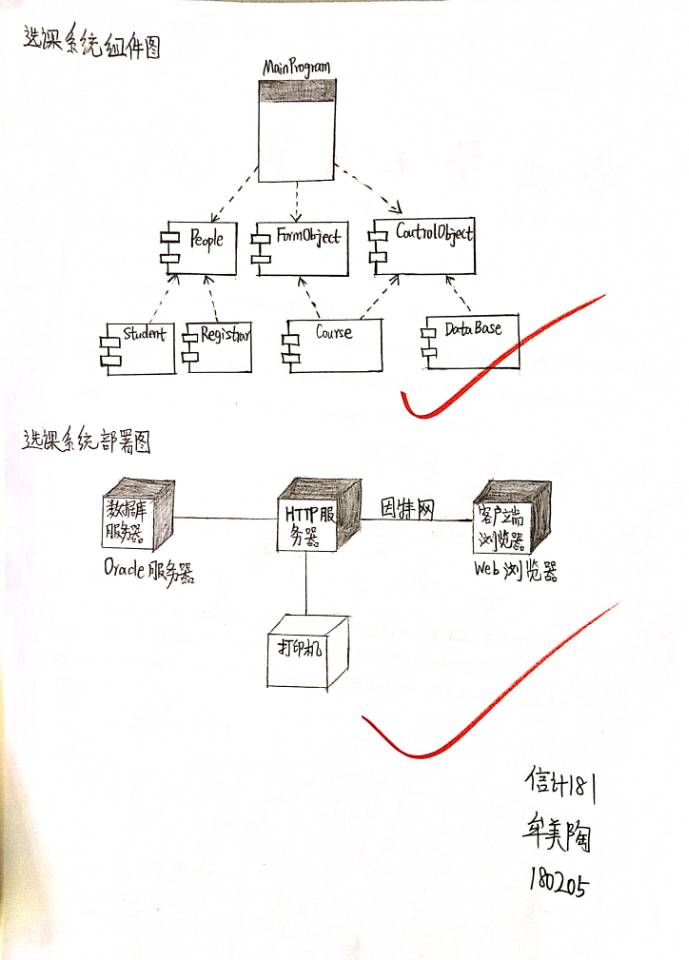 选课系统组件图
MainProgram
People
FormObject
ControlObject
Student
Registrar
Course
DataBase
选课系统部署图
数据库
服务器
Oracle服务器
HTTP服
务器
因特网
客户端
浏览器
Web浏览器
打印机
信计181
牟美陶
180205